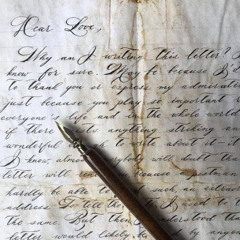 Dear Love,
Why am I writing this letter? I
know for sure. May be because I'd
to thank you or express my admiration
just because you play so important
everyone's life and in the whole world
if there is anything striking and
wonderful to write about it
I know almost everybody will doubt that
letter will
hardly be able to such, an
address. To tell the to
the same. But then I understood that
letter would likely be by anyone